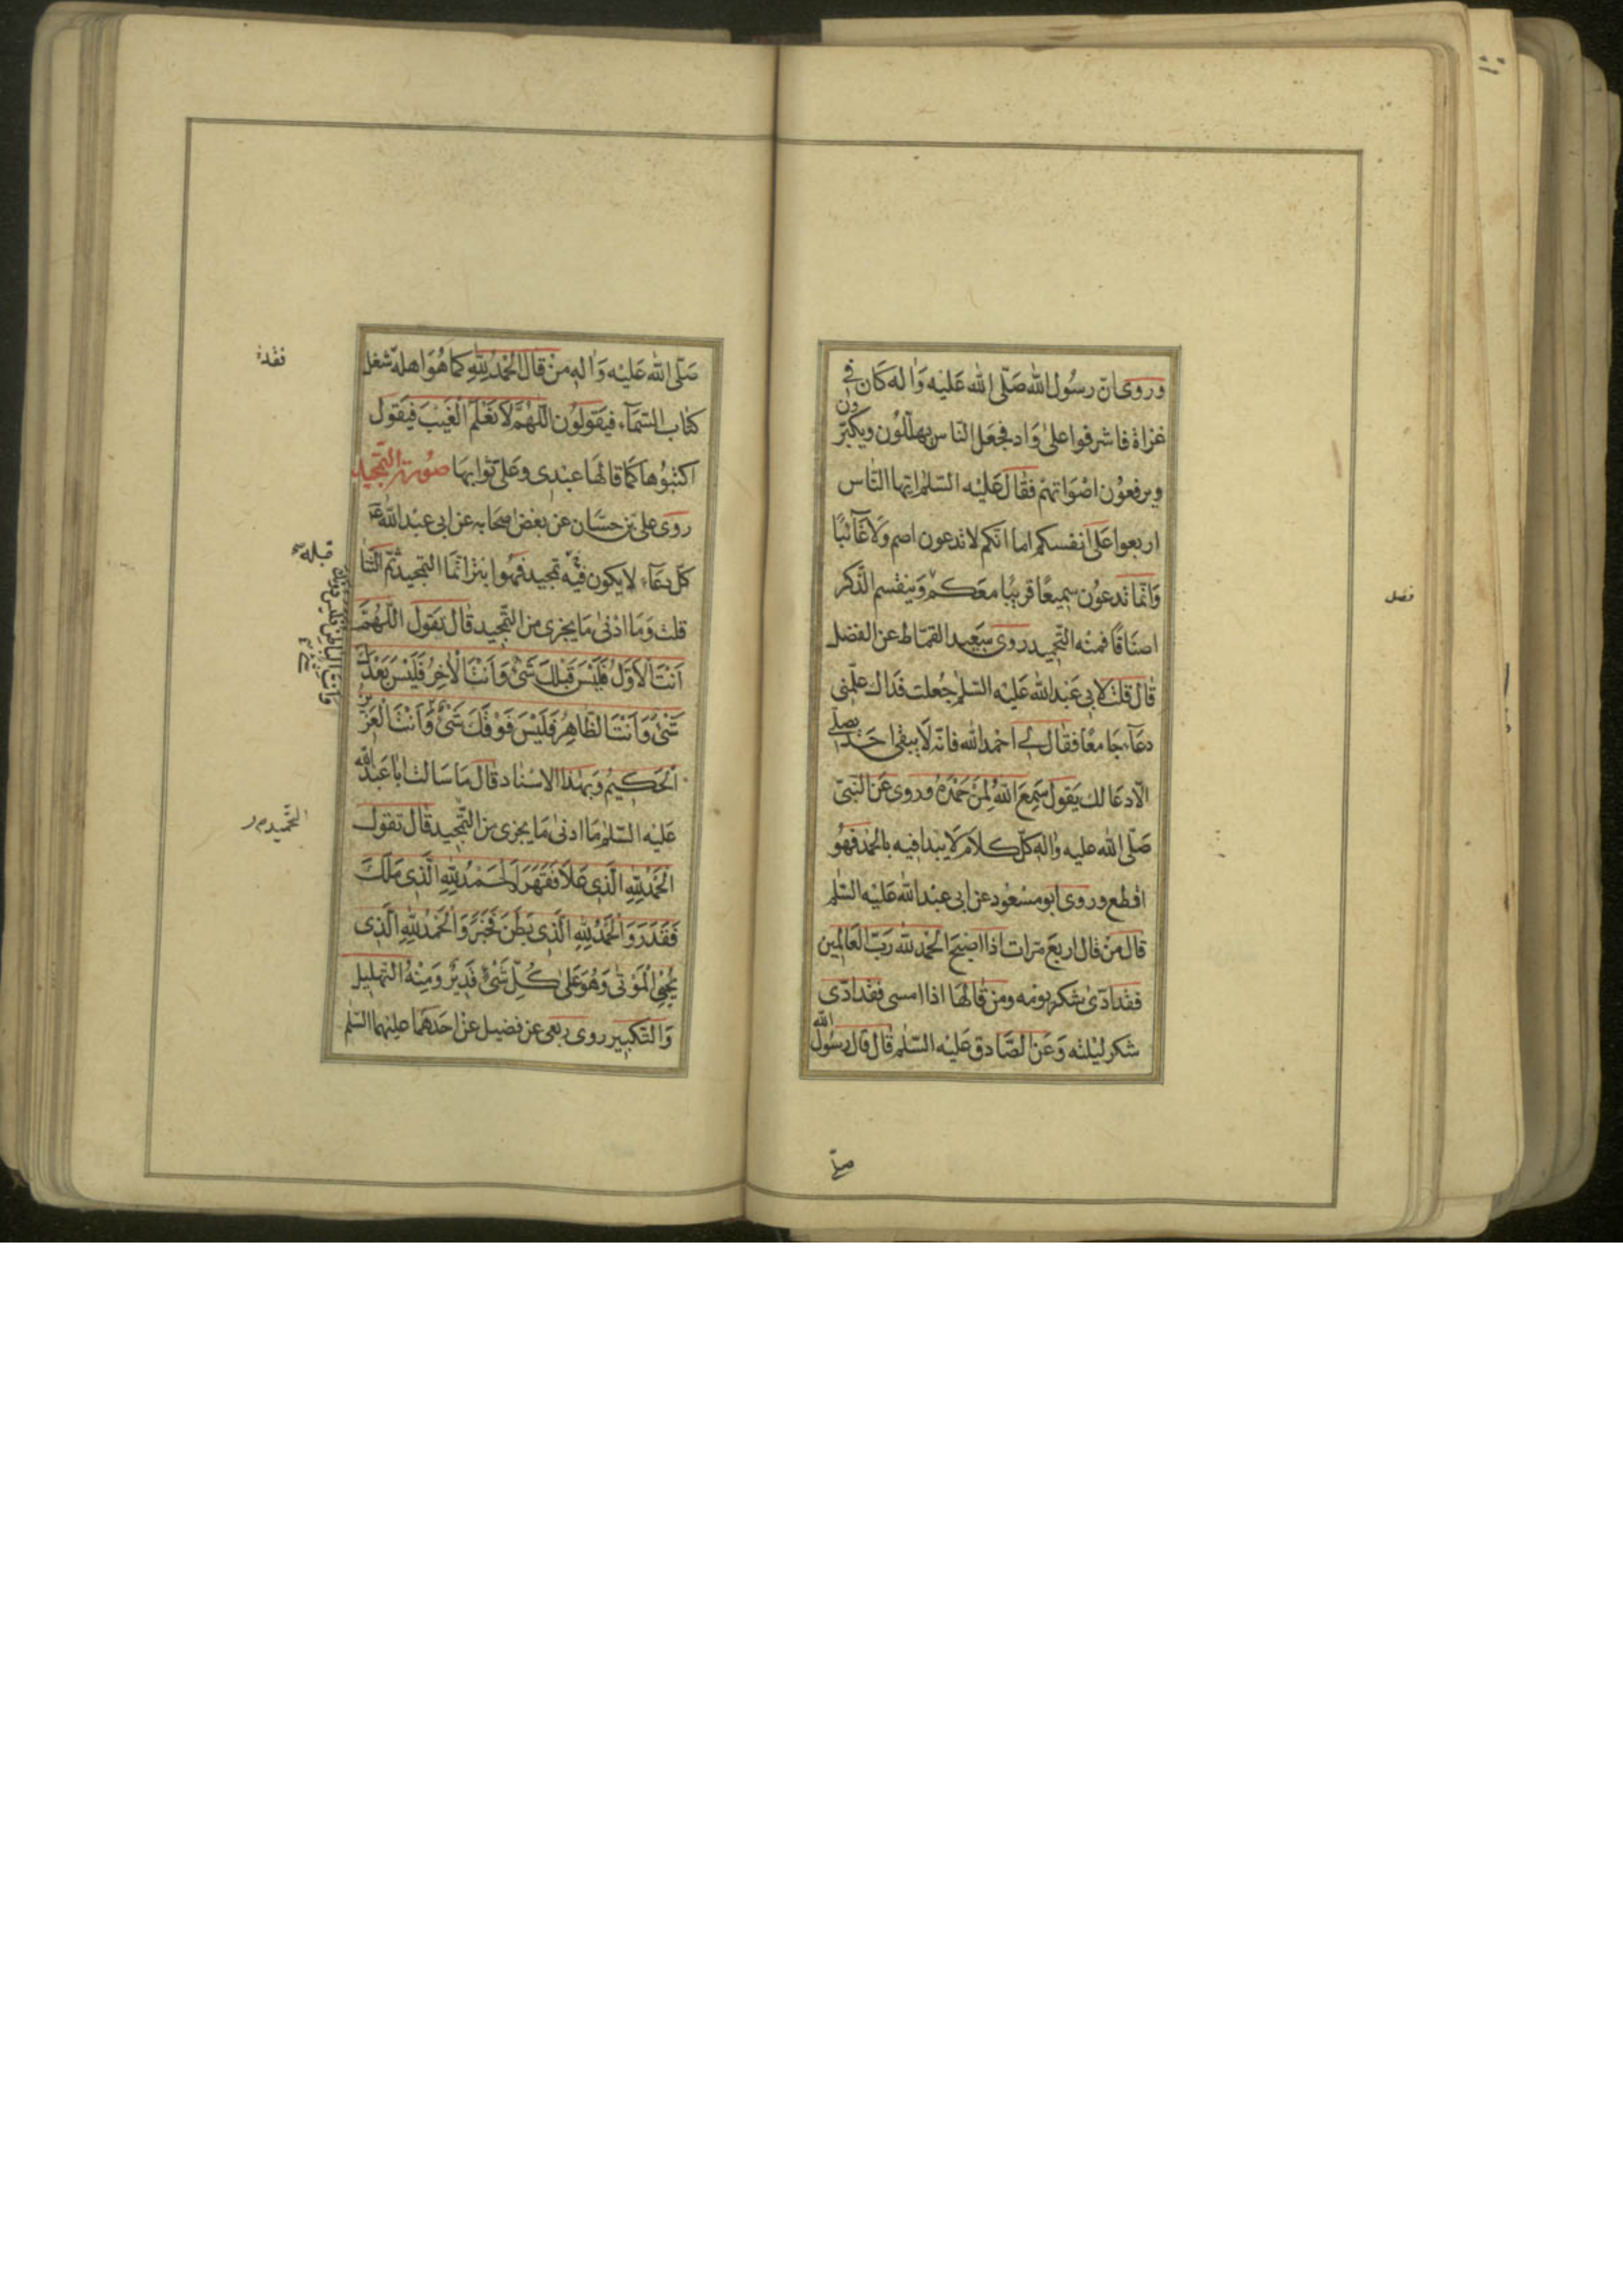 وروى ان رسول الله صلى الله عليه واله كان في
غزاة فاشرفوا على واد فجعل الناس يهللون ويكبرون
ويرفعون اصواتهم فقال عليه السلم ايها الناس
اربعوا على انفسكم اما انكم لا تدعون اصم ولا غائبا
وانما تدعون سميعا قريبا معكم وينقسم الذكر
اصنافا فمنه التحميد روى سعيد القماط عن الفضل
قال قلت لابي عبد الله عليه السلم جعلت فداك علمني
دعاء جامعا فقال لي احمد الله فانه لا يبقى احد يصلي
الا دعا لك يقول سَمِعَ اللهُ لِمَنْ حَمِدَهُ وروى عن النبي
صلى الله عليه واله كل كلام لا يبدا فيه بالحمد فهو
اقطع وروى ابو مسعود عن ابي عبد الله عليه السلم
قال من قال اربع مرات اذا اصبح الحمد لله رب العالمين
فقد ادى شكر يومه ومن قالها اذا امسى فقد ادى
شكر ليلته وعن الصادق عليه السلم قال قال رسول الله
فصل
صلى الله عليه واله من قال الحمد لله كما هو اهله شغل
كتاب السماء فيقولون اللهم لا نعلم الغيب فيقول
اكتبوها كما قالها عبدي وعلي ثوابها صورة التمجيد
روى علي بن حسان عن بعض اصحابه عن ابي عبد الله
كل دعاء لا يكون فيه تمجيد فهو ابتر انما التمجيد ثم الثنا
قلت وما ادنى ما يجزى من التمجيد قال تقول اللهم
اَنْتَ الْاَوَّلُ فَلَيْسَ قَبْلَكَ شَيْءٌ وَاَنْتَ الْاٰخِرُ فَلَيْسَ بَعْدَكَ
شَيْءٌ وَاَنْتَ الظَّاهِرُ فَلَيْسَ فَوْقَكَ شَيْءٌ وَاَنْتَ الْعَزِيزُ
الْحَكِيمُ وبهذا الاسناد قال ما سالت ابا عبد الله
عليه السلم ما ادنى ما يجزى من التمجيد قال تقول
اَلْحَمْدُ لِلّٰهِ الَّذِي عَلَا فَقَهَرَ اَلْحَمْدُ لِلّٰهِ الَّذِي مَلَكَ
فَقَدَرَ وَالْحَمْدُ لِلّٰهِ الَّذِي بَطَنَ فَخَبَرَ وَالْحَمْدُ لِلّٰهِ الَّذِي
يُحْيِي الْمَوْتٰى وَهُوَ عَلٰى كُلِّ شَيْءٍ قَدِيرٌ ومنه التهليل
والتكبير روى ربعي عن فضيل عن احدهما عليهما السلم
قبله
وانت الباطن فليس دونك
شيء
التحميد